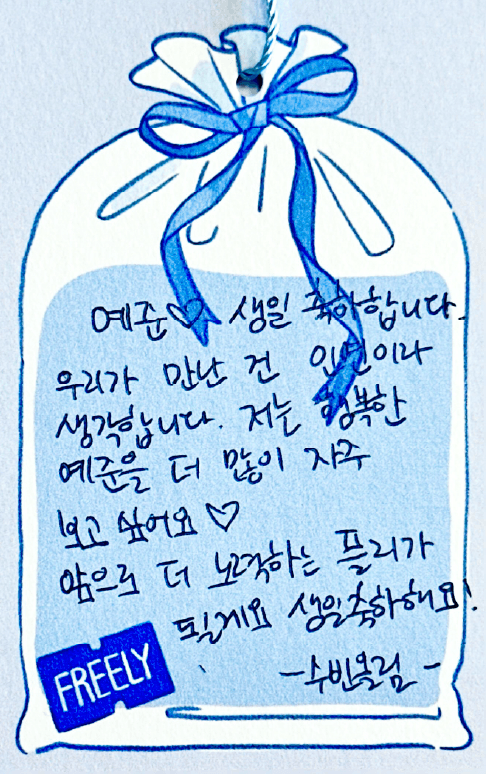 예준♡ 생일 축하합니다.
우리가 만난 건 인연이라
생각합니다. 저는 행복한
예준을 더 많이 자주
보고 싶어요♡
앞으로 더 노력하는 플리가
될게요 생일축하해요!
-수빈올림-
FREELY